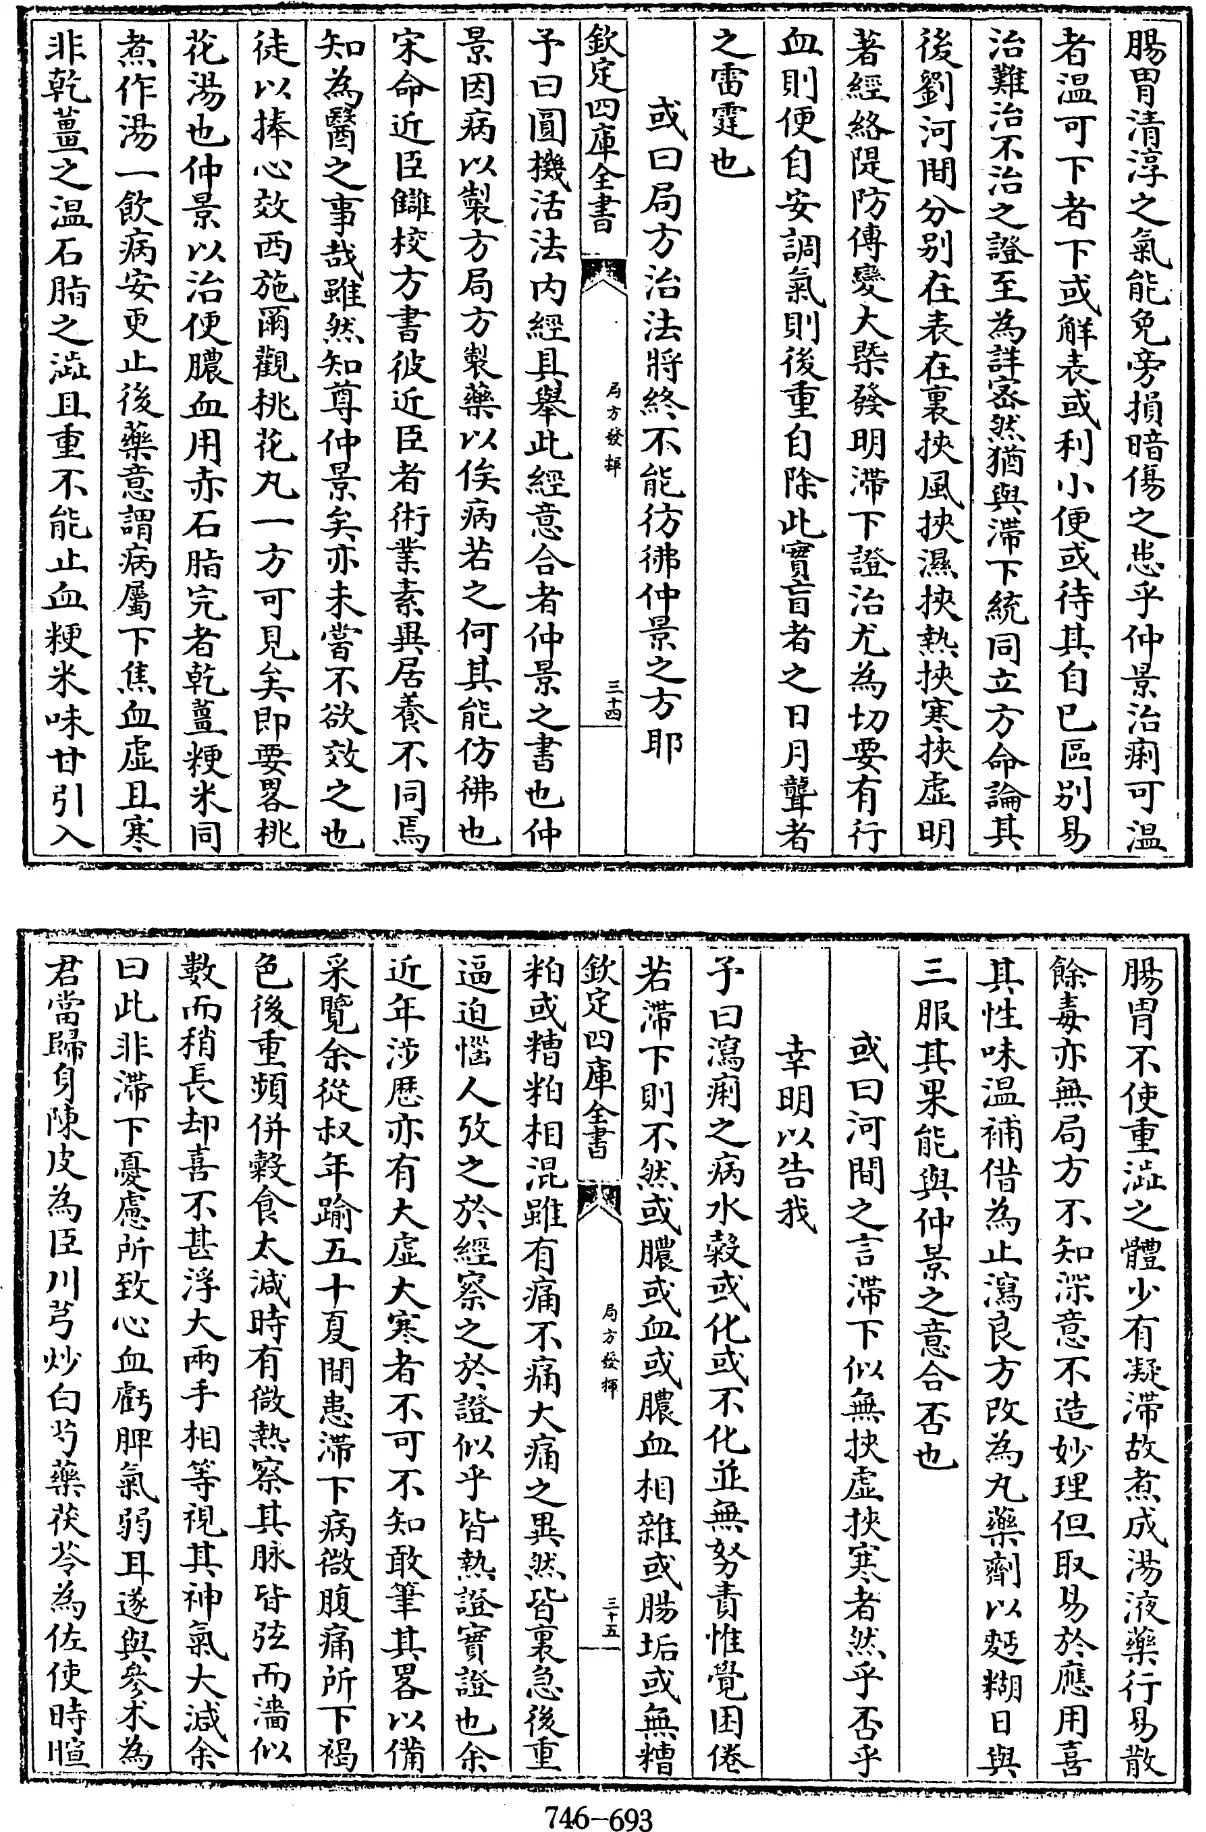 腸胃清淳之氣能免旁損暗傷之患乎仲景治痢可温
者温可下者下或解表或利小便或待其自已區别易
治難治不治之證至為詳宻然猶與滯下統同立方命論其
後劉河間分别在表在裏挾風挾濕挾熱挾寒挾虚明
著經絡隄防傳變大槩發明滯下證治尤為切要有行
血則便自安調氣則後重自除此實盲者之日月聾者
之雷霆也
或曰局方治法將終不能彷彿仲景之方耶
欽定四庫全書
局方發揮
三十四
予曰圓機活法内經具舉此經意合者仲景之書也仲
景因病以製方局方製藥以俟病若之何其能仿彿也
宋命近臣讎校方書彼近臣者術業素異居養不同焉
知為醫之事哉雖然知尊仲景矣亦未嘗不欲效之也
徒以捧心效西施爾觀桃花丸一方可見矣即要畧桃
花湯也仲景以治便膿血用赤石脂完者乾薑粳米同
煮作湯一飲病安更止後藥意謂病屬下焦血虚且寒
非乾薑之温石脂之澁且重不能止血粳米味甘引入
腸胃不使重澁之體少有凝滯故煮成湯液藥行易散
餘毒亦無局方不知深意不造妙理但取易於應用喜
其性味温補借為止瀉良方改為丸藥劑以麪糊日與
三服其果能與仲景之意合否也
或曰河間之言滯下似無挾虚挾寒者然乎否乎
幸明以告我
予曰瀉痢之病水穀或化或不化並無努責惟覺困倦
若滯下則不然或膿或血或膿血相雜或腸垢或無糟
欽定四庫全書
局方發揮
三十五
粕或糟粕相混雖有痛不痛大痛之異然皆裏急後重
逼迫惱人攷之於經察之於證似乎皆熱證實證也余
近年涉歴亦有大虚大寒者不可不知敢筆其畧以備
采覽余從叔年踰五十夏間患滯下病微腹痛所下褐
色後重頻併穀食大減時有微熱察其脉皆弦而濇似
數而稍長却喜不甚浮大兩手相等視其神氣大減余
曰此非滯下憂慮所致心血虧脾氣弱耳遂與參术為
君當歸身陳皮為臣川芎炒白芍藥茯苓為佐使時暄
746-693